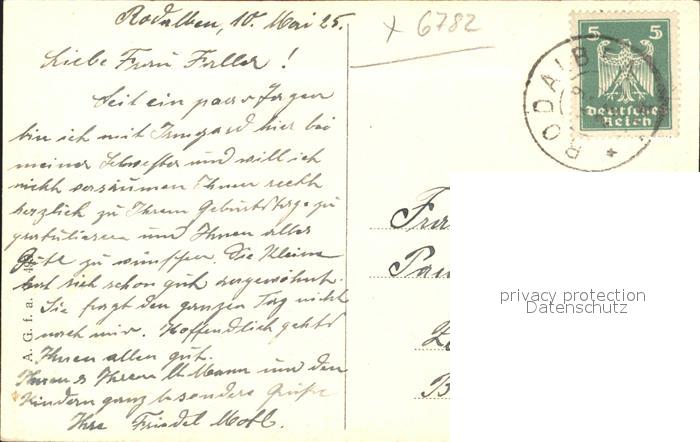 Rodalben, 10. Mai 25.
x 6782
Liebe Frau Faller!
Seit ein paar Tagen
bin ich mit Irmgard hier bei
meiner Schwester und will ich
nicht versäumen Ihnen recht
herzlich zu Ihrem Geburtstage zu
gratulieren und Ihnen alles
Gute zu wünschen. Die Kleine
hat sich schon gut angewöhnt.
Sie fragt den ganzen Tag nicht
nach mir. Hoffendlich gehts
Ihnen allen gut.
Ihnen Ihrem Mann und den
Kindern ganz besondere Grüße
Ihre Friedel
A.G.f.a.
5 5
Deutsches
Reich
RODALB
Fra
Pau
B
privacy protection
Datenschutz